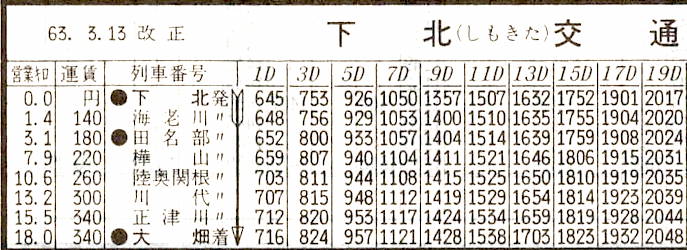 63. 3.13 改正 下北(しもきた)交通
営業キロ 運賃 列車番号 1D 3D 5D 7D 9D 11D 13D 15D 17D 19D
0.0 円 ●下北発 645 753 926 1050 1357 1507 1632 1752 1901 2017
1.4 140 海老川〃 648 756 929 1053 1400 1510 1635 1755 1904 2020
3.1 180 ●田名部〃 652 800 933 1057 1404 1514 1639 1759 1908 2024
7.9 220 樺山〃 659 807 940 1104 1411 1521 1646 1806 1915 2031
10.6 260 陸奥関根〃 703 811 944 1108 1415 1525 1650 1810 1919 2035
13.2 300 川代〃 707 815 948 1112 1419 1529 1654 1814 1923 2039
15.5 340 正津川〃 712 820 953 1117 1424 1534 1659 1819 1928 2044
18.0 340 ●大畑着 716 824 957 1121 1428 1538 1703 1823 1932 2048